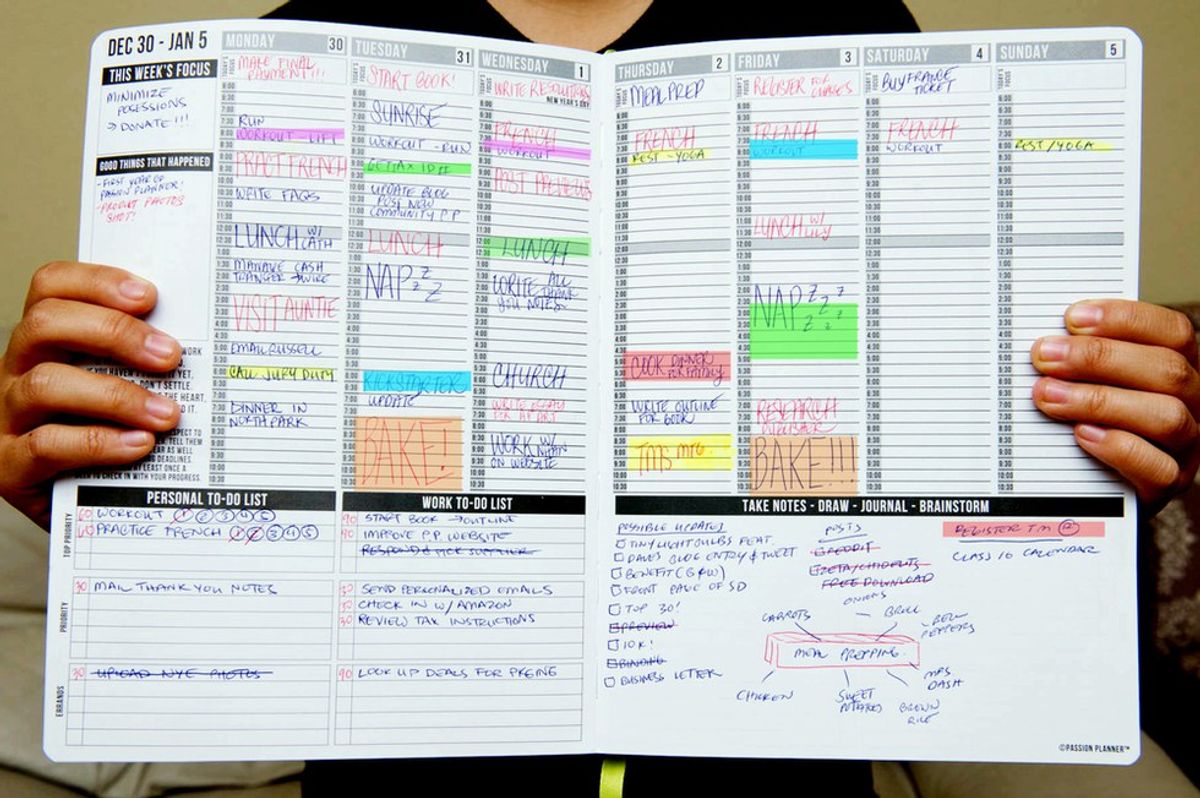 DEC 30 - JAN 5
THIS WEEK'S FOCUS
MINIMIZE
POSESSIONS
→ DONATE!!!
GOOD THINGS THAT HAPPENED
- FIRST YEAR OF
PASSION PLANNER!
- PRODUCT PHOTOS
SHOT!
MONDAY 30
TODAY'S FOCUS
MAKE FINAL
PAYMENT!!!
RUN
WORKOUT - LIFT
PRACT FRENCH
WRITE FAQS
LUNCH W/
CATH
MANAGE CASH
TRANSFER → WIRE
VISIT AUNTIE
EMAIL RUSSELL
CALL JURY DUTY
DINNER IN
NORTH PARK
TUESDAY 31
TODAY'S FOCUS
START BOOK!
SUNRISE
WORKOUT - RUN
GET TAX ID #
UPDATE BLOG
POST NEW
COMMUNITY P.P
LUNCH
NAP z z z
KICKSTARTER
UPDATE
BAKE!
WEDNESDAY 1
TODAY'S FOCUS
WRITE RESOLUTIONS
NEW YEAR'S DAY
FRENCH
WORKOUT
POST PREVIEWS
LUNCH
WRITE ALL
THANK
YOU NOTES
CHURCH
WRITE ESSAY
FOR AP ART
WORK W/
ON WEBSITE
THURSDAY 2
TODAY'S FOCUS
MEAL PREP
FRENCH
REST - YOGA
COOK DINNER
FOR FAMILY
WRITE OUTLINE
FOR BOOK
TMS MTG.
FRIDAY 3
TODAY'S FOCUS
REGISTER FOR
CLASSES
FRENCH
WORKOUT
LUNCH W/
LILY
NAP z z z z z z
RESEARCH
BAKE!!!
SATURDAY 4
TODAY'S FOCUS
BUY FRANCE
TICKET
FRENCH
WORKOUT
SUNDAY 5
TODAY'S FOCUS
REST/YOGA
PERSONAL TO-DO LIST
TOP PRIORITY
60 WORKOUT 1 2 3 4 5
60 PRACTICE FRENCH 1 2 3 4 5
PRIORITY
30 MAIL THANK YOU NOTES
ERRANDS
30 UPLOAD NYE PHOTOS
WORK TO-DO LIST
90 START BOOK → OUTLINE
90 IMPROVE P.P. WEBSITE
RESPOND & PICK SUPPLIER
30 SEND PERSONALIZED EMAILS
30 CHECK IN W/ AMAZON
30 REVIEW TAX INSTRUCTIONS
90 LOOK UP DEALS FOR PKGING
TAKE NOTES - DRAW - JOURNAL - BRAINSTORM
POSSIBLE UPDATES
TINY LIGHT BULBS FEAT.
DAVES BLOG ENTRY & TWEET
BENEFIT (B&W)
FRONT PAGE OF SD
TOP 30!
PREVIEW
10K!
BINDING
BUSINESS LETTER
POSTS
REDDIT
FREE DOWNLOAD
REGISTER TM ®
CLASS 16 CALENDAR
ONIONS
CARROTS
BROLL
BELL
PEPPERS
MEAL PREPPING
CHICKEN
SWEET
POTATOES
BROWN
RICE
MRS
DASH
©PASSION PLANNER™